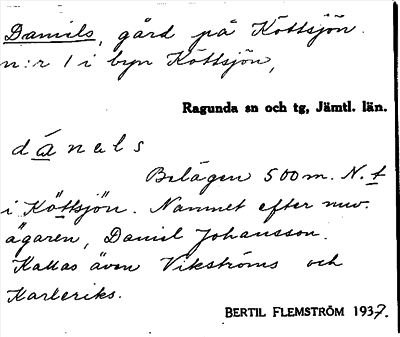 Daniels, gård på Köttsjön.
n:r 1 i byn Köttsjön,
Ragunda sn och tg, Jämtl. län.
dánels
Belägen 500 m. N. t
i Köttsjön. Namnet efter nuv.
ägaren, Daniel Johansson.
Kallas även Vikströms och
Karleriks.
BERTIL FLEMSTRÖM 1937.